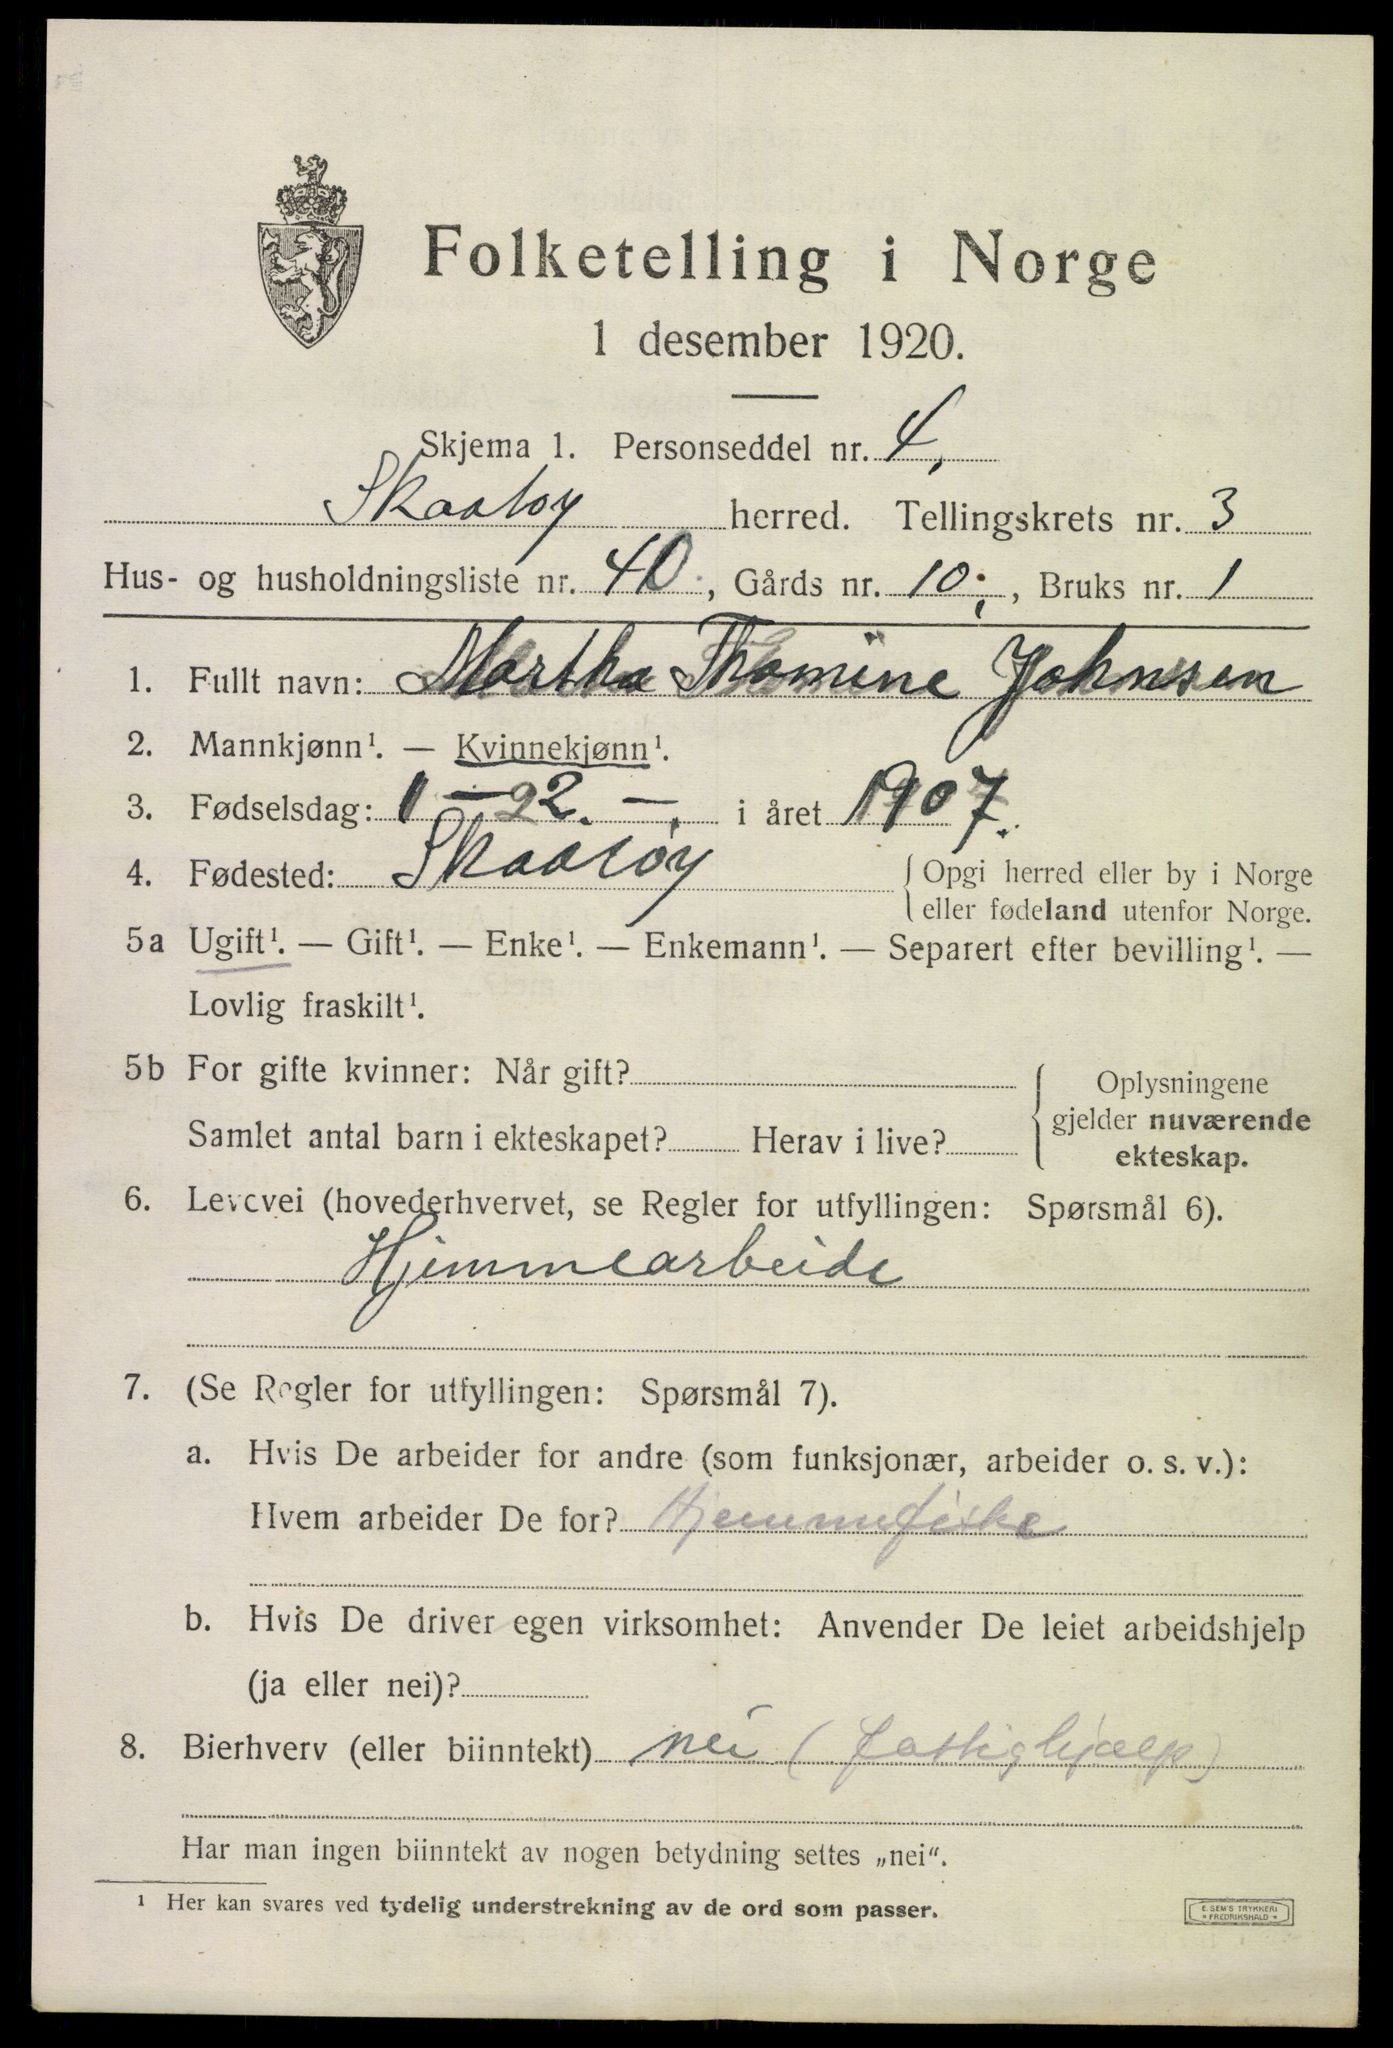 Folketelling i Norge
1 desember 1920.
Skjema 1. Personseddel nr. 4.
Skaatøy herred. Tellingskrets nr. 3
Hus- og husholdningsliste nr. 40, Gårds nr. 10, Bruks nr. 1
1. Fullt navn: Martha Thomine Johnsen
2. Mannkjønn¹. — Kvinnekjønn¹.
3. Fødselsdag: 1 — 22. — i året 1907.
4. Fødested: Skaatøy { Opgi herred eller by i Norge
eller fødeland utenfor Norge.
5a Ugift¹. — Gift¹. — Enke¹. — Enkemann¹. — Separert efter bevilling¹. —
Lovlig fraskilt¹.
5b For gifte kvinner: Når gift? { Oplysningene
gjelder nuværende
Samlet antal barn i ekteskapet? Herav i live?
ekteskap.
6. Levevei (hovederhvervet, se Regler for utfyllingen: Spørsmål 6).
Hjemmearbeide
7. (Se Regler for utfyllingen: Spørsmål 7).
a. Hvis De arbeider for andre (som funksjonær, arbeider o. s. v.):
Hvem arbeider De for? Hjemmefiske
b. Hvis De driver egen virksomhet: Anvender De leiet arbeidshjelp
(ja eller nei)?
8. Bierhverv (eller biinntekt) nei (fattighjælp)
Har man ingen biinntekt av nogen betydning settes „nei“.
¹ Her kan svares ved tydelig understrekning av de ord som passer.
E. SEM'S TRYKKERI
* FREDRIKSHALD *